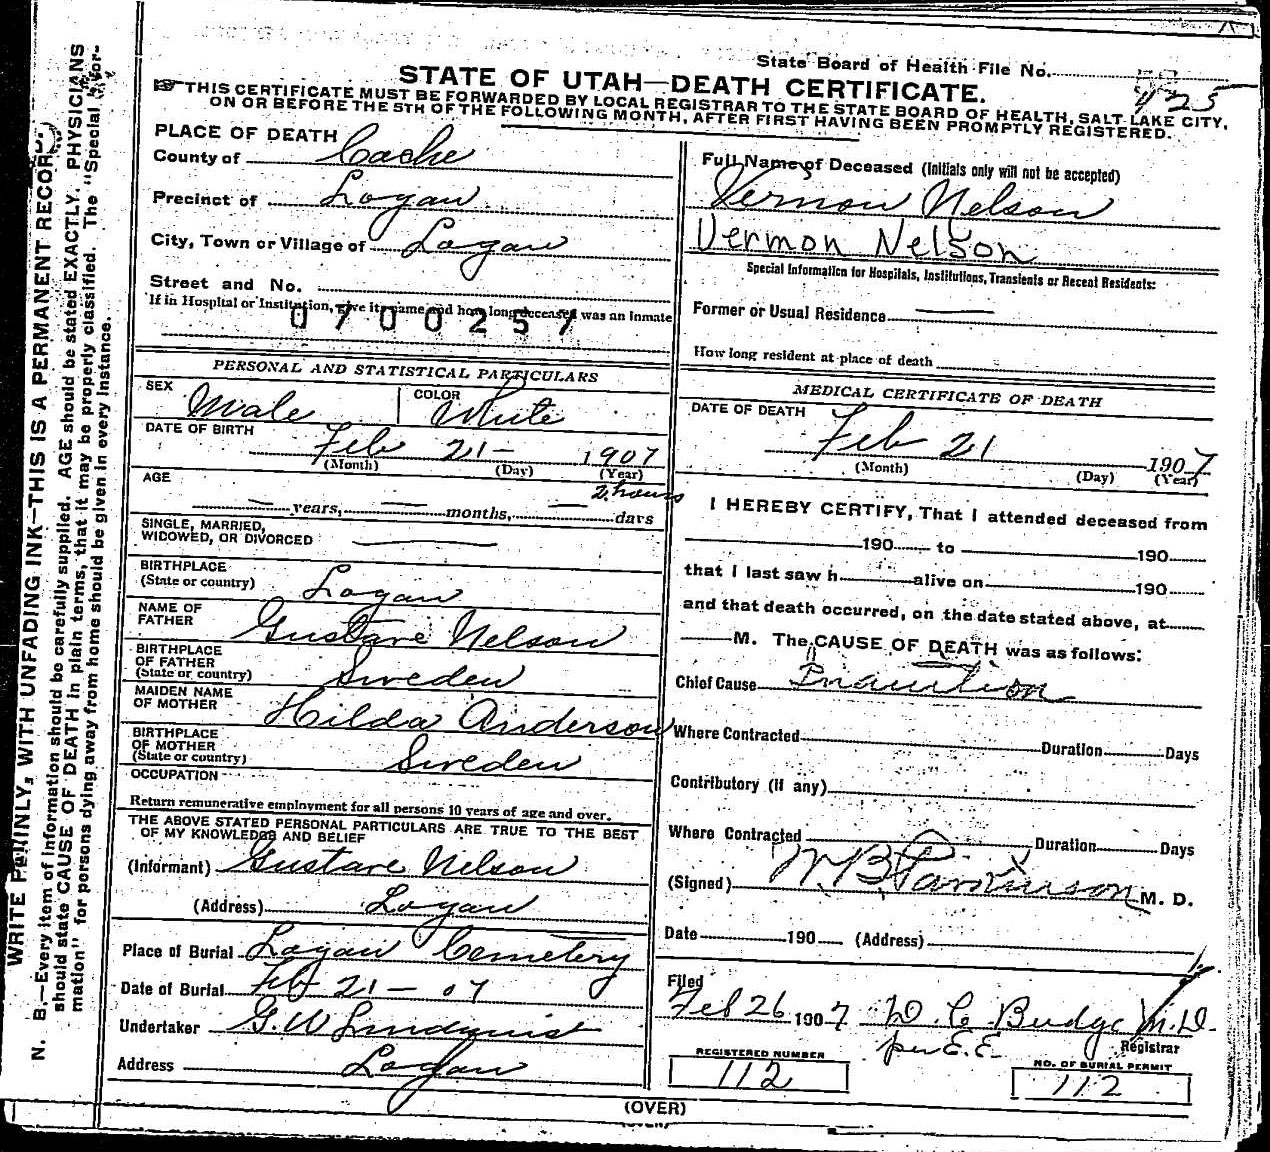 State Board of Health File No. 425
STATE OF UTAH—DEATH CERTIFICATE.
☞ THIS CERTIFICATE MUST BE FORWARDED BY LOCAL REGISTRAR TO THE STATE BOARD OF HEALTH, SALT LAKE CITY,
ON OR BEFORE THE 5TH OF THE FOLLOWING MONTH, AFTER FIRST HAVING BEEN PROMPTLY REGISTERED.
PLACE OF DEATH
County of Cache
Precinct of Logan
City, Town or Village of Logan
Street and No.
If in Hospital or Institution, give its name and how long deceased was an inmate
0700257
PERSONAL AND STATISTICAL PARTICULARS
SEX Male COLOR White
DATE OF BIRTH Feb 21- 1907
(Month) (Day) (Year)
AGE 2 hours
— years, — months, — days
SINGLE, MARRIED,
WIDOWED, OR DIVORCED —
BIRTHPLACE
(State or country) Logan
NAME OF
FATHER Gustave Nelson
BIRTHPLACE
OF FATHER
(State or country) Sweden
MAIDEN NAME
OF MOTHER Hilda Anderson
BIRTHPLACE
OF MOTHER
(State or country) Sweden
OCCUPATION
Return remunerative employment for all persons 10 years of age and over.
THE ABOVE STATED PERSONAL PARTICULARS ARE TRUE TO THE BEST
OF MY KNOWLEDGE AND BELIEF
(Informant) Gustave Nelson
(Address) Logan
Place of Burial Logan Cemetery
Date of Burial Feb 21 - 07
Undertaker G.W Lindquist
Address Logan
Full Name of Deceased (Initials only will not be accepted)
Vernon Nelson
Vermon Nelson
Special Information for Hospitals, Institutions, Transients or Recent Residents:
Former or Usual Residence —
How long resident at place of death
MEDICAL CERTIFICATE OF DEATH
DATE OF DEATH Feb 21 1907
(Month) (Day) (Year)
I HEREBY CERTIFY, That I attended deceased from
190 to 190
that I last saw h alive on 190
and that death occurred, on the date stated above, at
M. The CAUSE OF DEATH was as follows:
Chief Cause Inanition
Where Contracted Duration Days
Contributory (if any)
Where Contracted Duration Days
(Signed) W B Parkinson M. D.
Date 190 (Address)
Filed
Feb 26 1907 D C Budge M.D.
per E.E. Registrar
REGISTERED NUMBER
112
NO. OF BURIAL PERMIT
112
(OVER)
WRITE PLAINLY, WITH UNFADING INK—THIS IS A PERMANENT RECORD.
N. B.—Every item of information should be carefully supplied. AGE should be stated EXACTLY. PHYSICIANS
should state CAUSE OF DEATH in plain terms, that it may be properly classified. The "Special Infor-
mation" for persons dying away from home should be given in every instance.